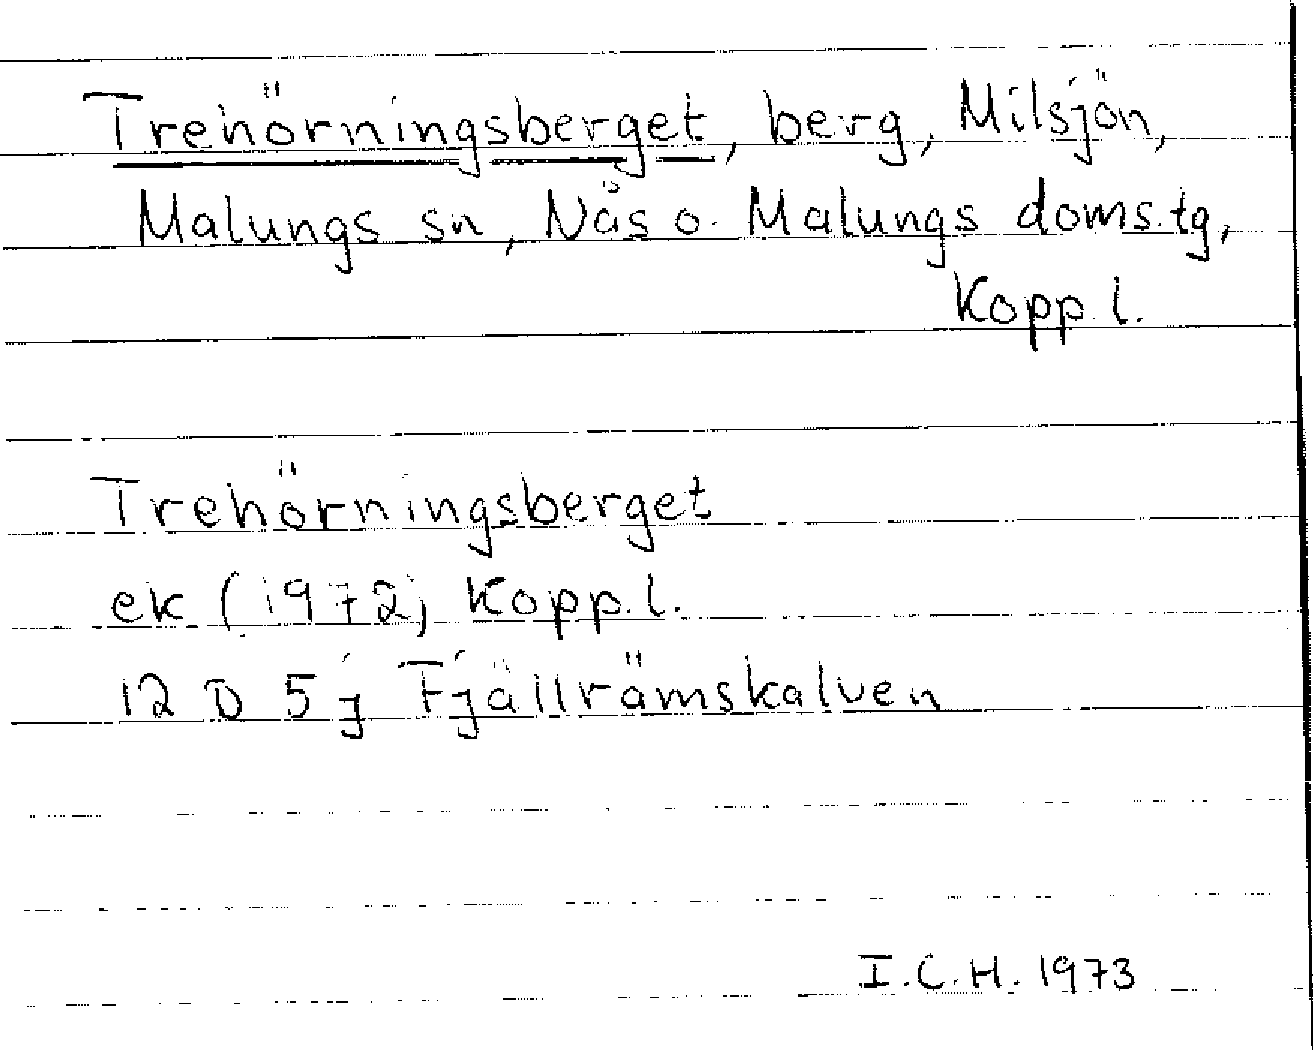 Trehörningsberget, berg, Milsjön,
Malungs sn, Näs o. Malungs doms.tg,
Kopp. l.
Trehörningsberget
ek (1972) Kopp. l.
12 D 5 j Fjällrämskalven
I.C.H. 1973